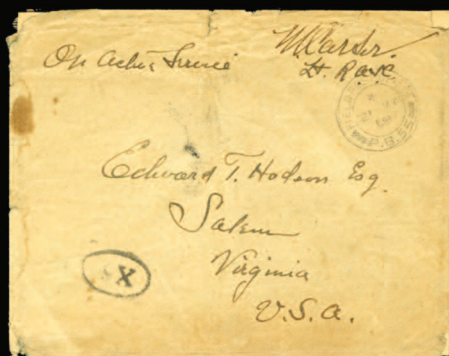 On Active Service
Lt. R.A.M.C.
Edward T. Hodson Esq.
Salem
Virginia
U.S.A.
X